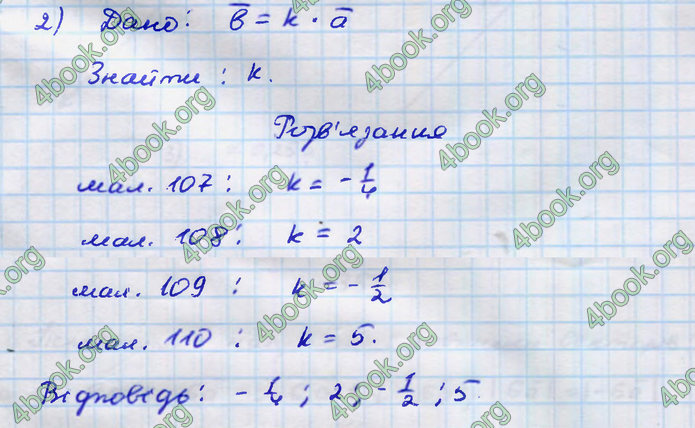 2) Дано: b̅ = k · a̅
Знайти: k.
Розв'язання
мал. 107: k = -1/4
мал. 108: k = 2
мал. 109: k = -1/2
мал. 110: k = 5.
Відповідь: -1/4; 2; -1/2; 5.
4book.org
4book.org
4book.org
4book.org
4book.org
4book.org
4book.org
4book.org
4book.org
4book.org
4book.org
4book.org
4book.org
4book.org